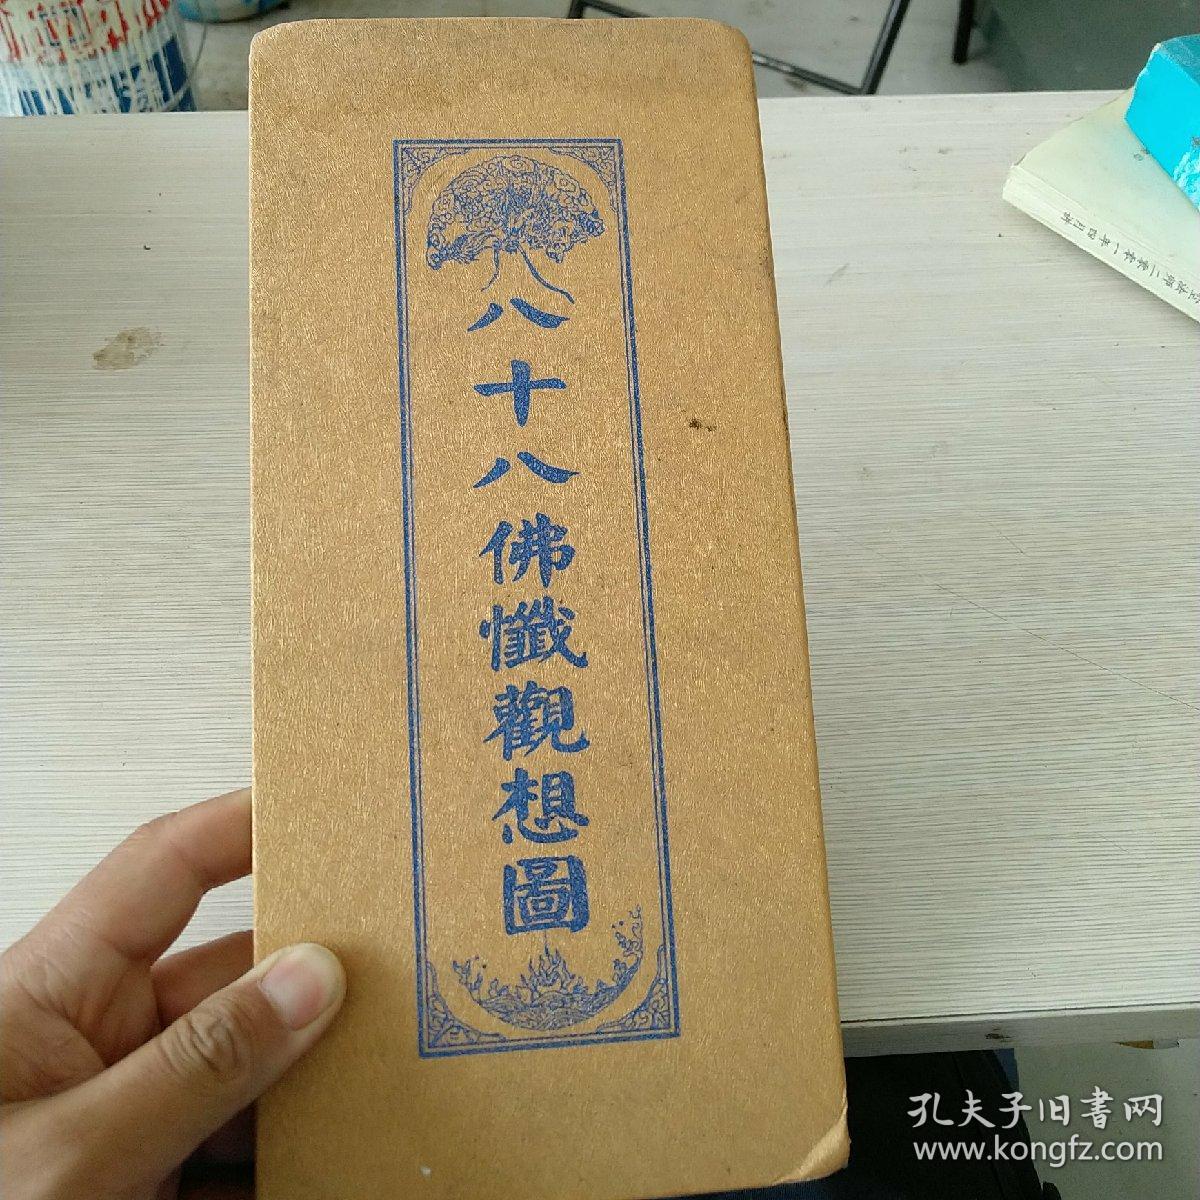 八十八佛懺觀想圖
孔夫子旧書网
www.kongfz.com